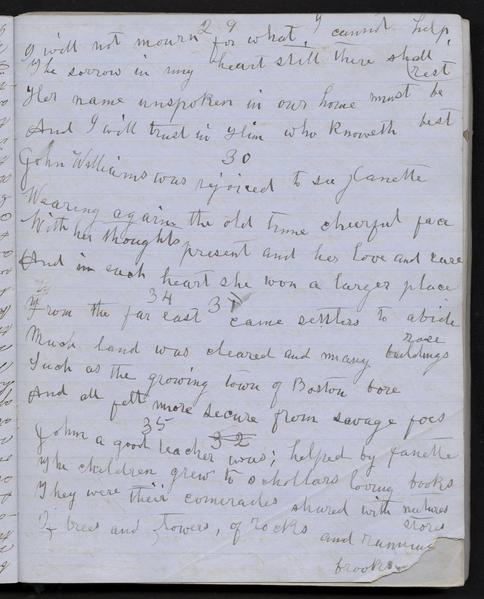 29
I will not mourn for what I cannot help,
The sorrow in my heart still there shall rest
Her name unspoken in our home must be
And I will trust in Him who knoweth best
30
John Williams was rejoiced to see Janette
Wearing again the old time cheerful face
With her thoughts present and her love and care
And in each heart she won a larger place
34 31
From the far east came settlers to abide
Much land was cleared and many buildings rose
Such as the growing town of Boston bore
And all felt more secure from savage foes
35 32
John a good teacher was; helped by Janette
The children grew to schollars loving books
They were their comerades shared with natures stores
Of trees and flowers, of rocks and running
brooks